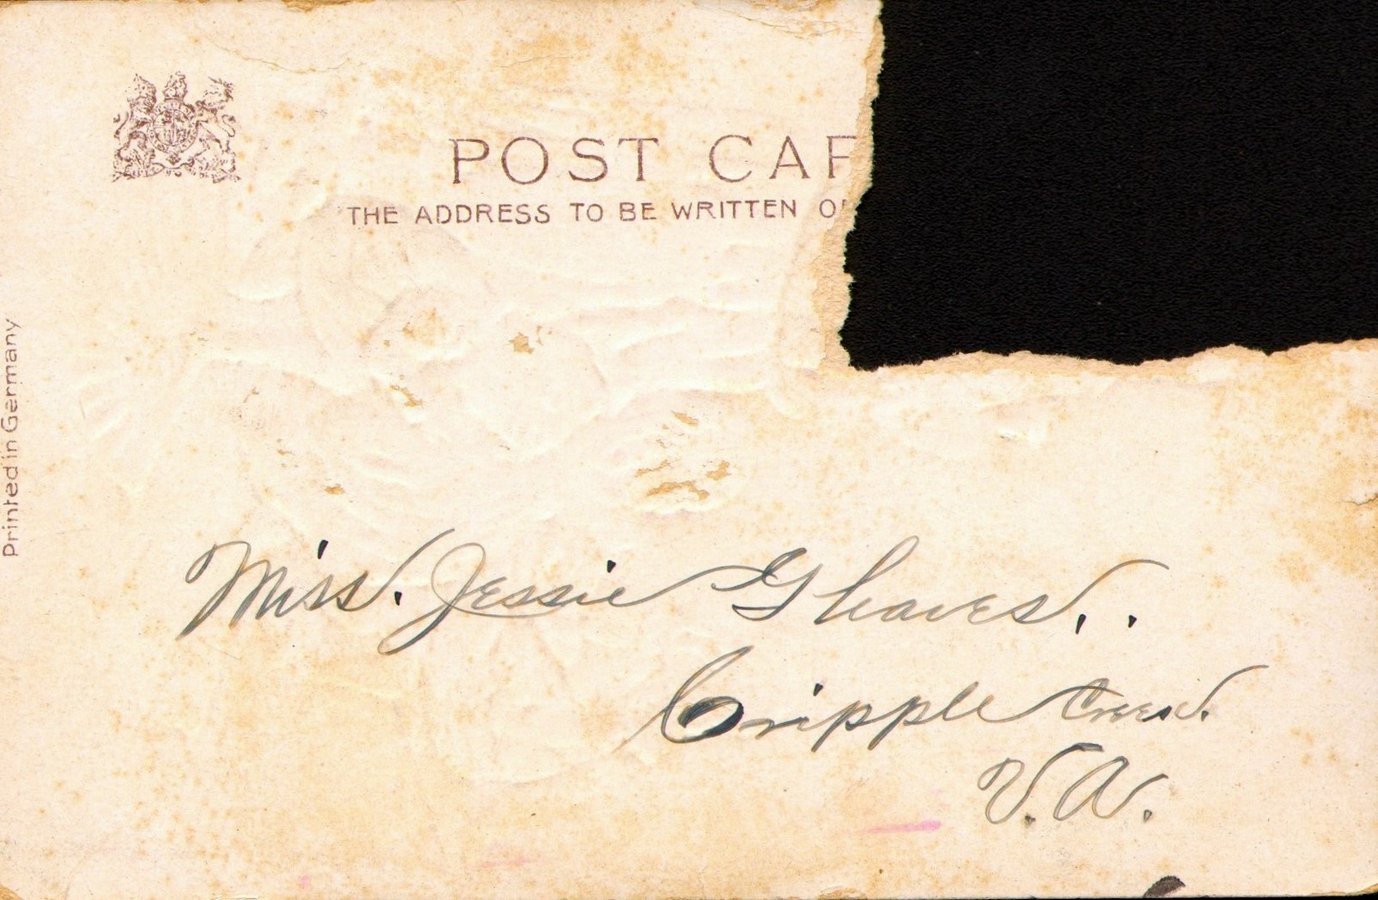 POST CAR
THE ADDRESS TO BE WRITTEN O
Printed in Germany
Miss. Jessie Gleaves..
Cripple Creek.
V.A.